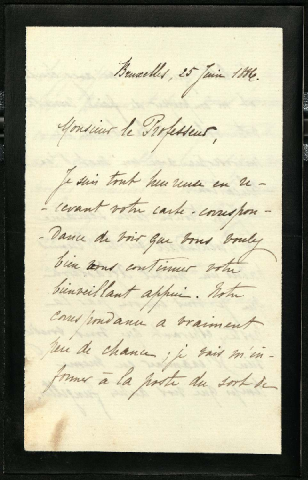 Bruxelles, 25 Juin 1886.
Monsieur le Professeur,
Je suis tout heureuse en re-
-cevant votre carte-correspon-
-dance de voir que vous voulez
bien nous continuer votre
bienveillant appui. Notre
correspondance a vraiment
peu de chance ; je vais m'in-
former à la poste du sort de